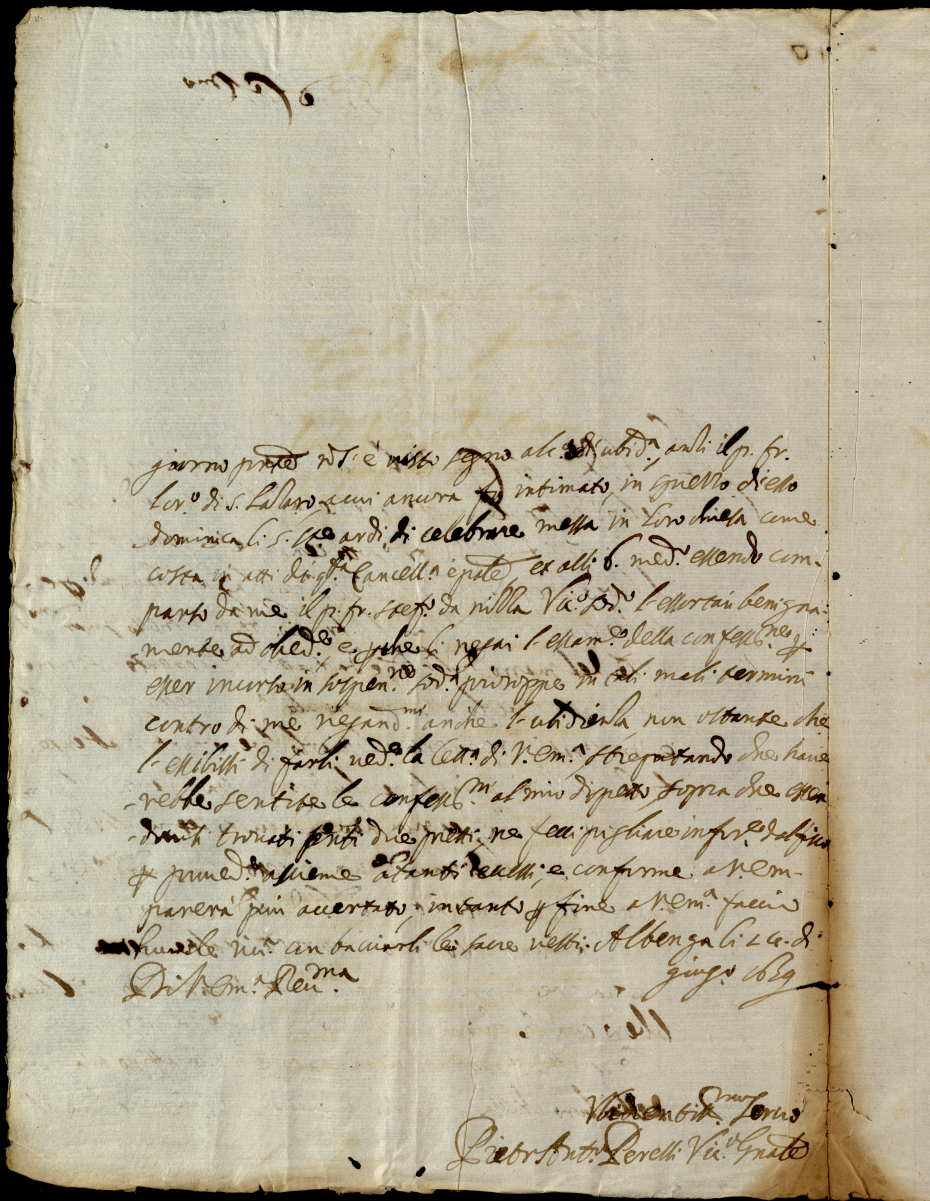 giorno pnte non s'è visto segno alc.o d'ubid.a, anzi il p. fr.
Lor.o di S. Lazaro, a cui ancora fu intimato, in quello di esso
dominica li s. di celebrare messa in loro chiesa come
costa in atti di q.ta Cancell.a epale, et alli 6. med.o essendo com-
parso da me il p. fr. Stef.o da nizza Vic.o sod.o l'essortai benigna-
mente ad obed.e e perche li negai l'essam.e della confess.ne per
esser incorso in sospen.ne sod.a proruppe in tali mali termini
contro di me negand.mi anche l'ubidienza, non ostante che
l'essibissi di farli ved.e la lett.a di V. Em.a strepitando che have-
rebbe sentite le confess.ni al mio dispetto, sopra che essen-
dovisi trovati pnti due preti, ne feci pigliare infor.e dal fisco
per proved.e assieme a tanti eccessi, e conforme a V. Em.
parerà più accertato, intanto per fine a V. Em.a faccio
humile riv.a con baciarli le sacre vesti. Albenga li di
Di V. Em.a Rev.ma giug.o 1659
Ser.o
Pietr'Ant.o Perelli Vic.o Gnale